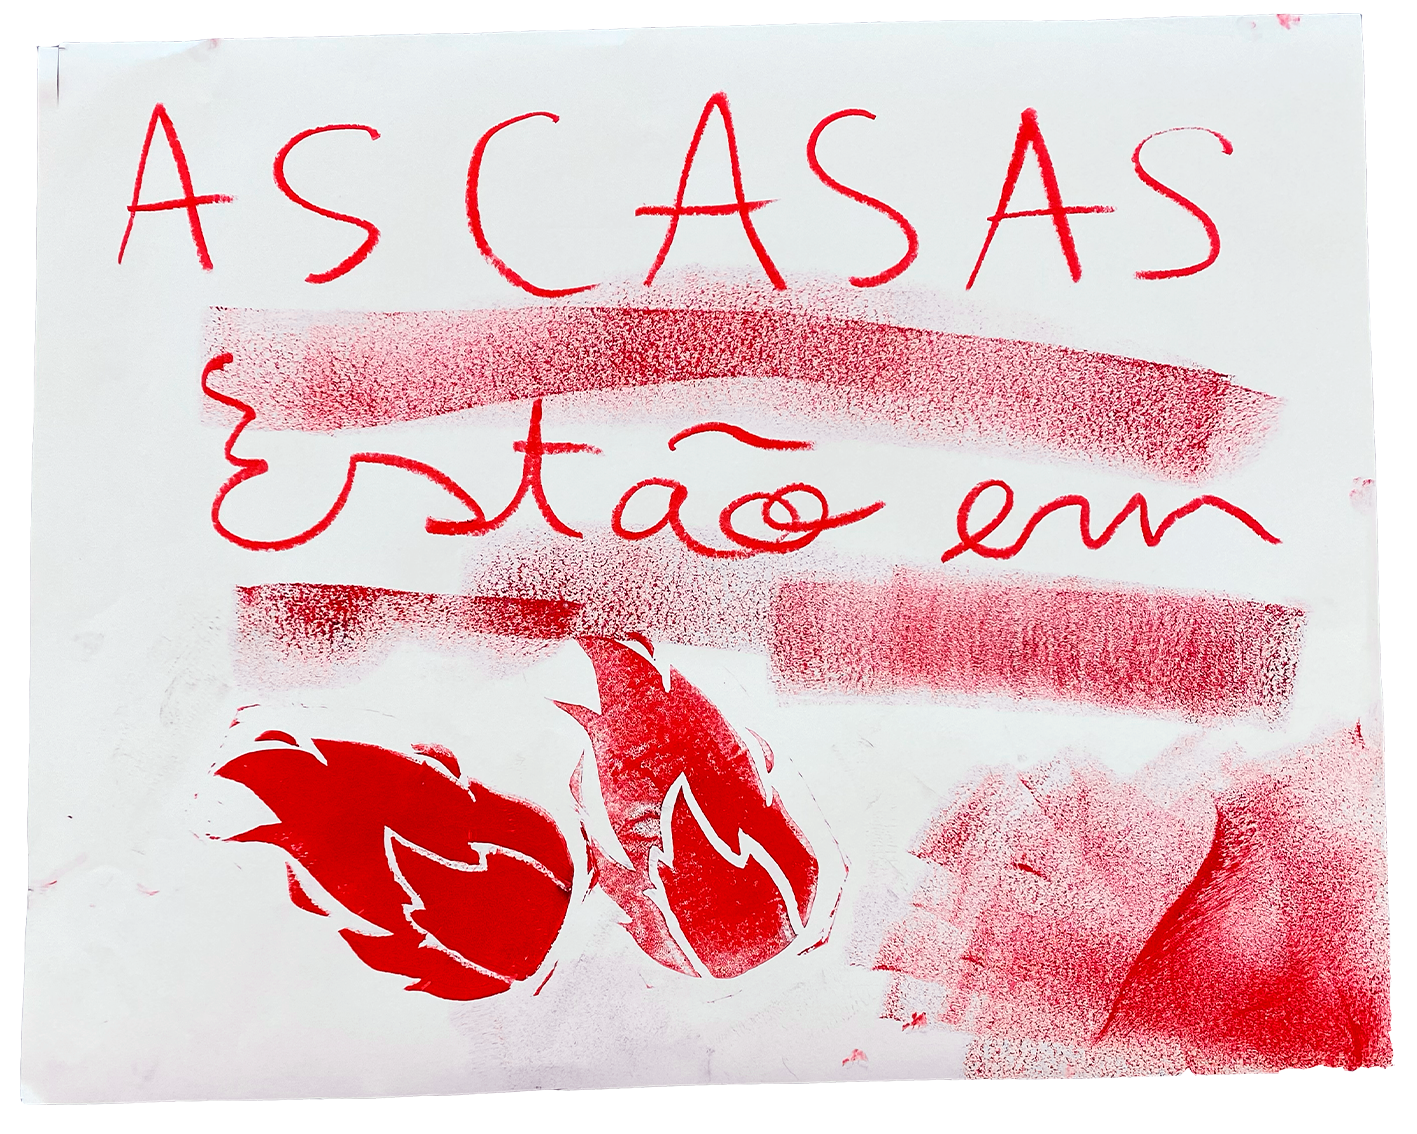 AS CASAS
Estão em